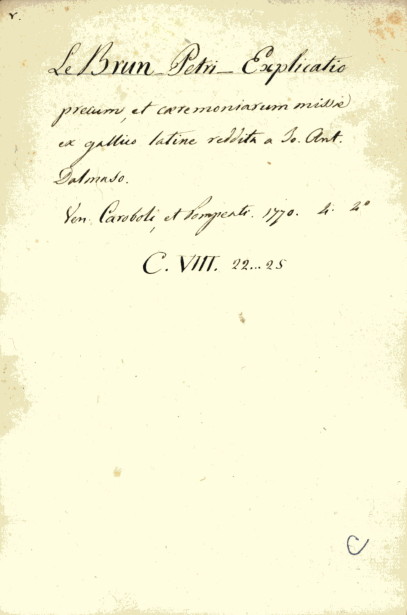 v.
Le Brun Petri Explicatio
precum, et cæremoniarum missæ
ex gallico latine reddita a Jo. Ant.
Dalmaso.
Ven. Caroboli, et Pompeati. 1770. 4. 4º
C. VIII. 22...25
C